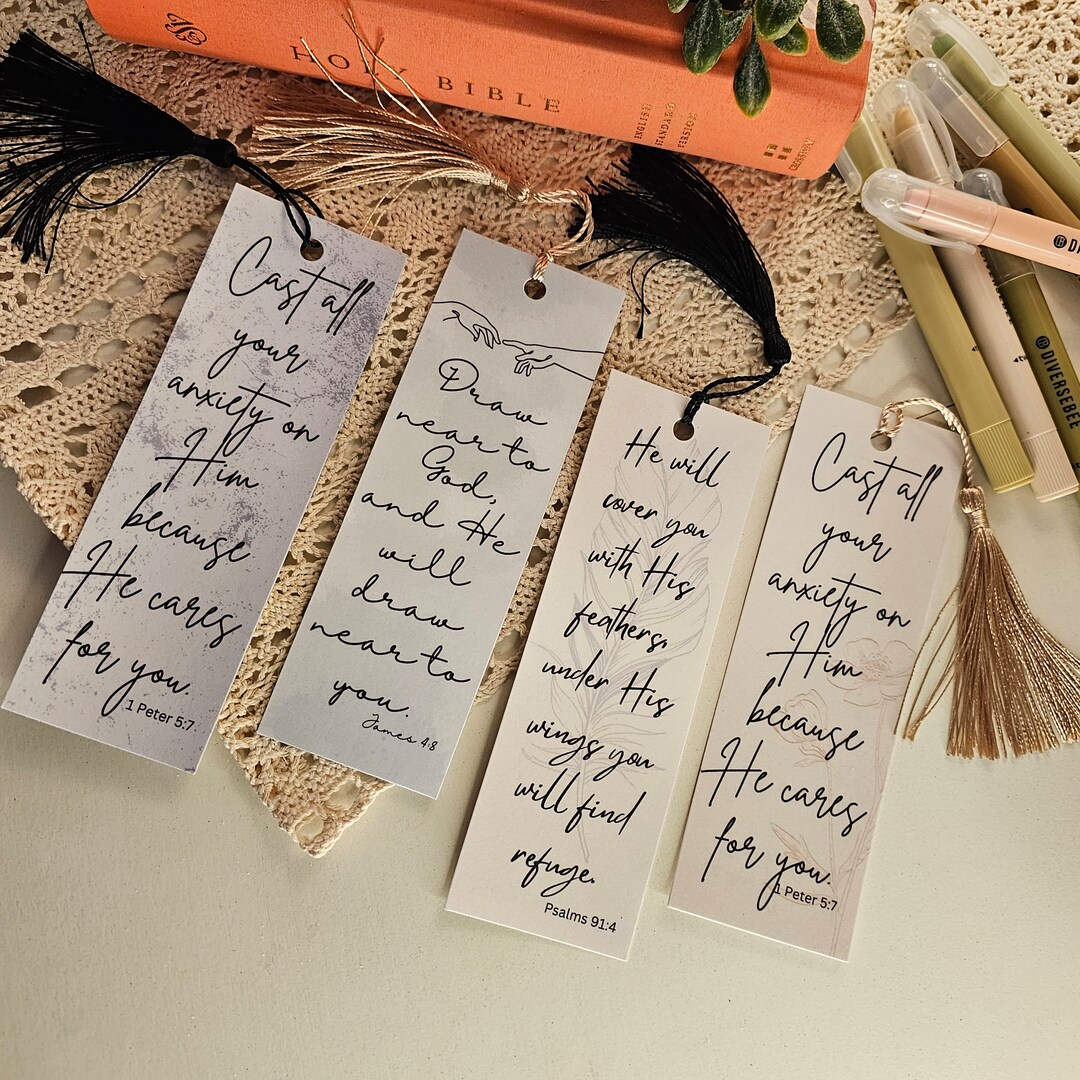 HOLY BIBLE
ENGLISH
STANDARD
VERSION
CROSSWAY
Cast all
your
anxiety on
Him
because
He cares
for you.
1 Peter 5:7
Draw
near to
God,
and He
will
draw
near to
you.
James 4:8
He will
cover you
with His
feathers,
under His
wings you
will find
refuge.
Psalms 91:4
Cast all
your
anxiety on
Him
because
He cares
for you.
1 Peter 5:7
DIVERSEBEE